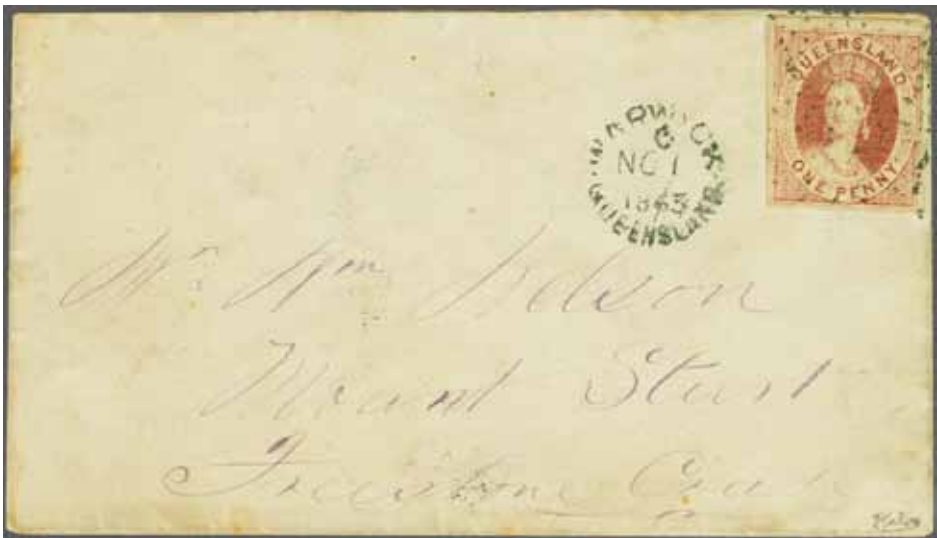 QUEENSLAND
ONE PENNY
WARWICK
C
NO 1
1863
QUEENSLAND
Mr. Wm
Mount Sturt
Freestone Creek